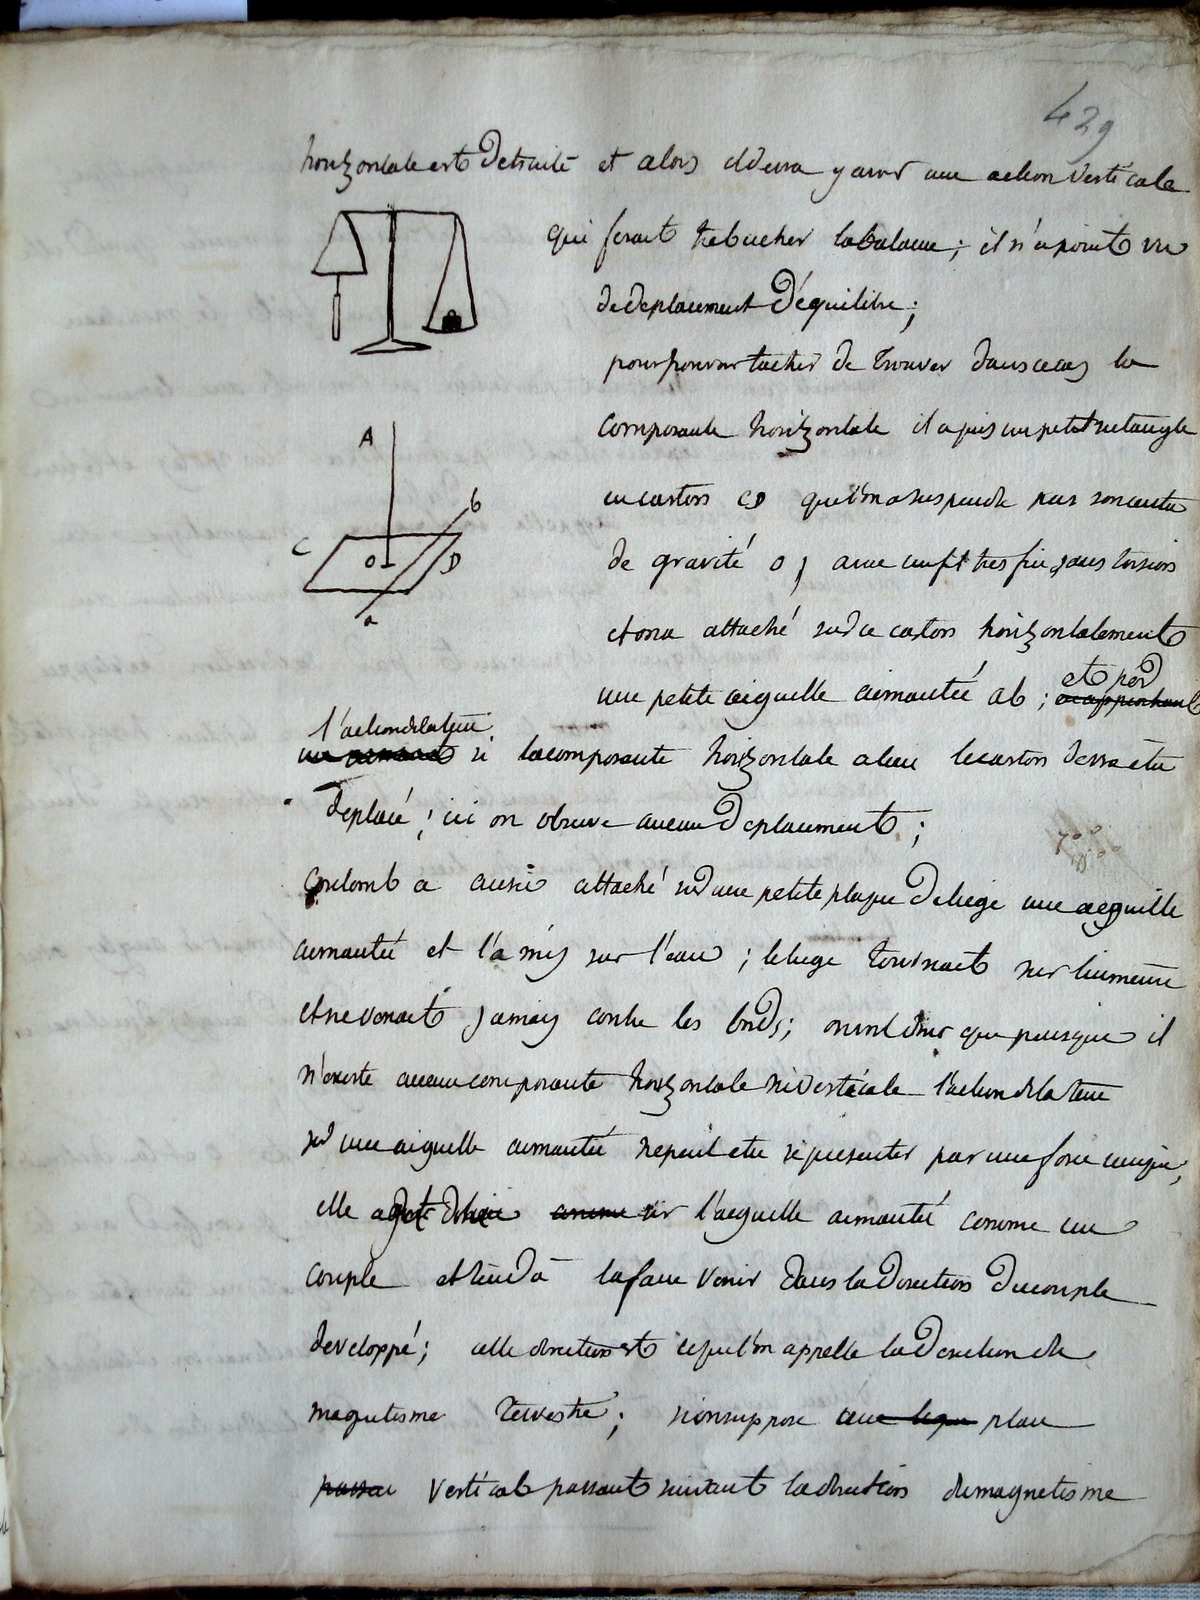 429
horizontale est detruite et alors il devra y avoir une action verticale
qui ferait trebucher la balance; il n'a point vu
de deplacement d'équilibre;
pour pouvoir tacher de trouver dans ce cas la
composante horizontale il a pris un petit rectangle
en carton CD que l'on a suspendu par son centre
de gravité o, avec un fil tres fin sans torsion
A
b
C
o
D
a
et on a attaché sur ce carton horizontalement
et par
une petite aiguille aimantée ab;
l'action de la terre
si la composante horizontale a lieu le carton devra etre
deplacé; ici on observe aucun deplacement;
Coulomb a aussi attaché sur une petite plaque de liege une aiguille
aimantée et l'a mis sur l'eau; le liege tournait sur lui meme
et ne venait jamais contre les bords; que puisque il
n'existe aucune composante horizontale ni verticale l'action de la terre
sur une aiguille aimantée ne peut etre representer par une force unique;
elle sur l'aiguille aimantée comme un
couple et tend à la faire venir dans la direction du couple
developpé; cette direction est ce que l'on appelle la direction du
magnetisme terrestre; si on suppose plan
vertical passant suivant la direction du magnetisme